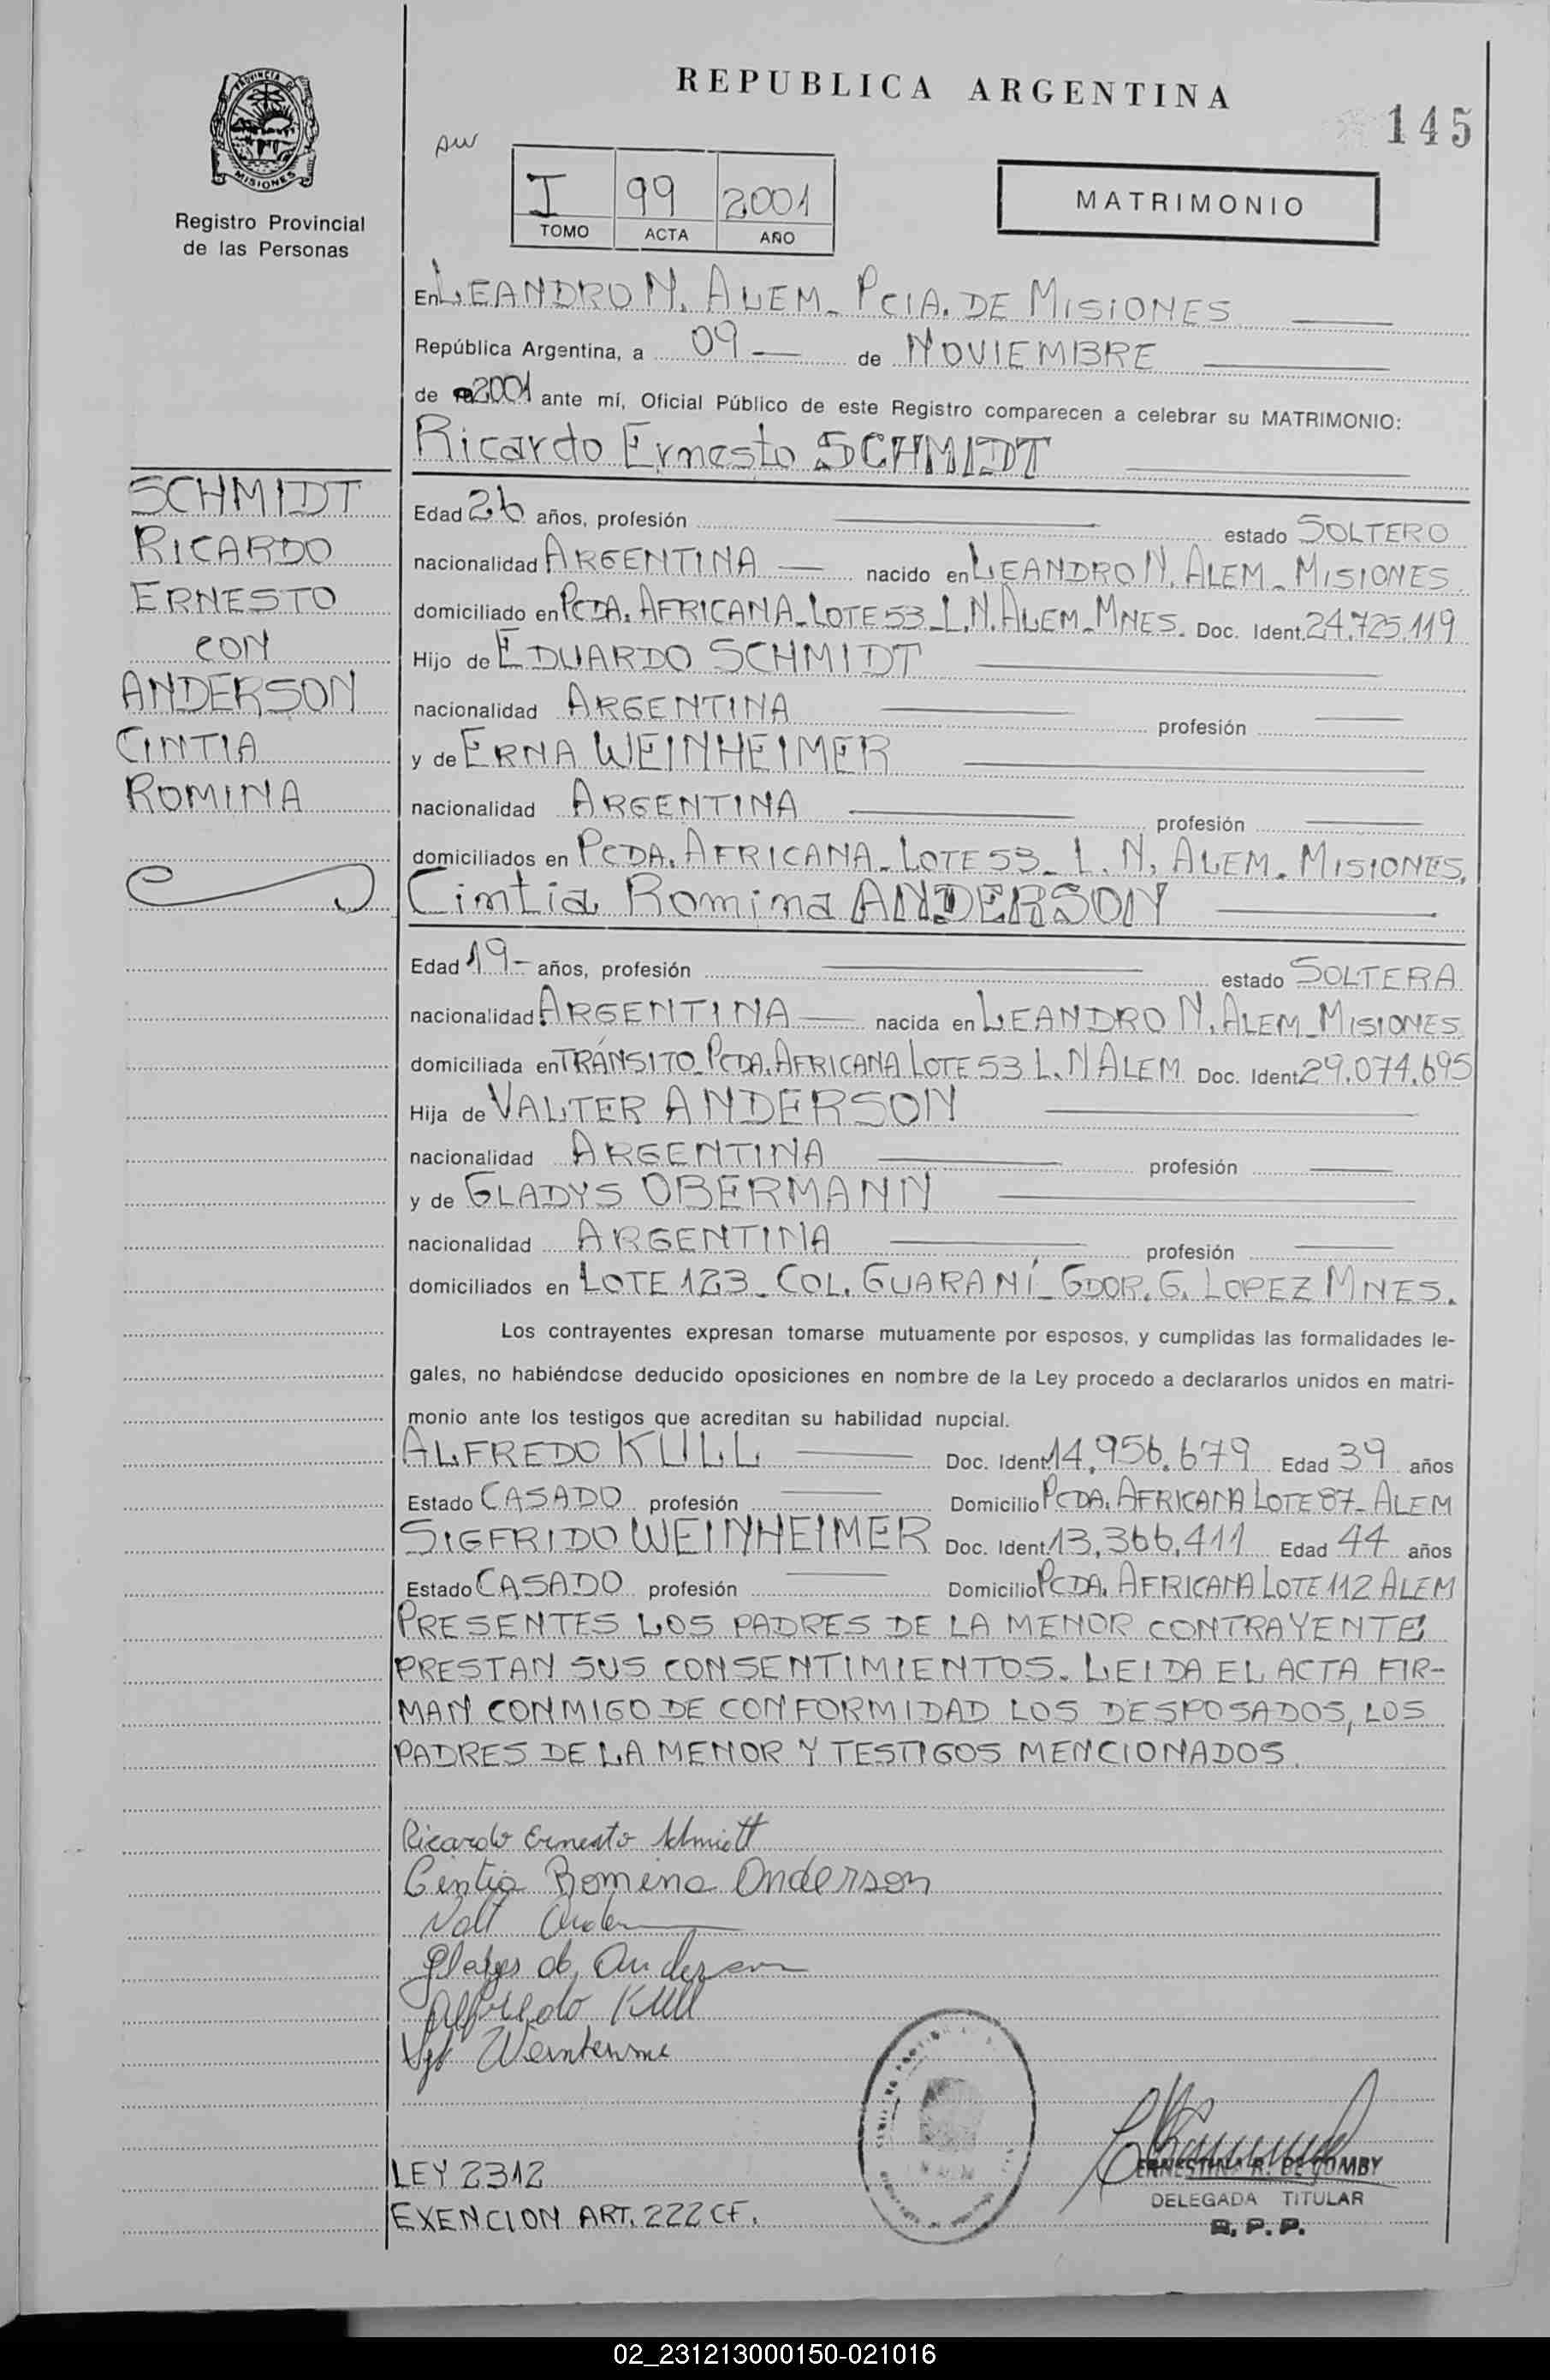 REPUBLICA ARGENTINA
145
PROVINCIA
MISIONES
Registro Provincial
de las Personas
I 99 2001
TOMO ACTA AÑO
MATRIMONIO
En LEANDRO N. ALEM_ PCIA. DE MISIONES
República Argentina, a 09 de NOVIEMBRE
de 2001 ante mí, Oficial Público de este Registro comparecen a celebrar su MATRIMONIO:
Ricardo Ernesto SCHMIDT
SCHMIDT
RICARDO
ERNESTO
CON
ANDERSON
CINTIA
ROMINA
Edad 26 años, profesión estado SOLTERO
nacionalidad ARGENTINA nacido en LEANDRO N. ALEM_ MISIONES
domiciliado en PCDA. AFRICANA_LOTE 53_L.N.ALEM_MNES. Doc. Ident. 24.725.119
Hijo de EDUARDO SCHMIDT
nacionalidad ARGENTINA profesión
y de ERNA WEINHEIMER
nacionalidad ARGENTINA profesión
domiciliados en PCDA. AFRICANA_LOTE 53_ L. N. ALEM_ MISIONES.
Cintia Romina ANDERSON
Edad 19- años, profesión estado SOLTERA
nacionalidad ARGENTINA nacida en LEANDRO N. ALEM_MISIONES
domiciliada en TRÁNSITO_PCDA. AFRICANA LOTE 53 L. N ALEM Doc. Ident. 29.074.695
Hija de VALTER ANDERSON
nacionalidad ARGENTINA profesión
y de GLADYS OBERMANN
nacionalidad ARGENTINA profesión
domiciliados en LOTE 123_ COL. GUARANÍ_ GDOR. G. LOPEZ MNES.
Los contrayentes expresan tomarse mutuamente por esposos, y cumplidas las formalidades le-
gales, no habiéndose deducido oposiciones en nombre de la Ley procedo a declararlos unidos en matri-
monio ante los testigos que acreditan su habilidad nupcial.
ALFREDO KULL Doc. Ident. 14.956.679 Edad 39 años
Estado CASADO profesión Domicilio PCDA. AFRICANA LOTE 87_ ALEM
SIGFRIDO WEINHEIMER Doc. Ident. 13.366.411 Edad 44 años
Estado CASADO profesión Domicilio PCDA. AFRICANA LOTE 112 ALEM
PRESENTES LOS PADRES DE LA MENOR CONTRAYENTE
PRESTAN SUS CONSENTIMIENTOS. LEIDA EL ACTA FIR-
MAN CONMIGO DE CONFORMIDAD LOS DESPOSADOS, LOS
PADRES DE LA MENOR Y TESTIGOS MENCIONADOS.
Ricardo Ernesto Schmidt
Cintia Romina Anderson
Gladys de Anderson
Alfredo Kull
LEY 2312
EXENCION ART. 222 CF.
ERNESTINA R. DE GOMBY
DELEGADA TITULAR
R. P. P.
02_231213000150-021016